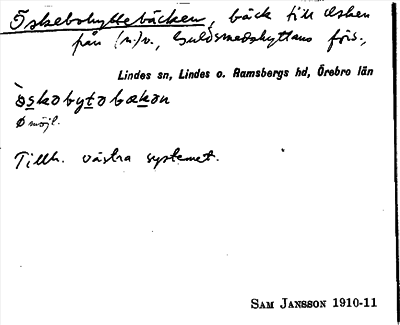 Öskebohyttebäcken, bäck till Äsken
från (n.)v., Guldsmedshyttans förs.,
Lindes sn, Lindes o. Ramsbergs hd, Örebro län
ø̀skobytobækən
ø möjl.
Tillh. västra systemet.
SAM JANSSON 1910-11